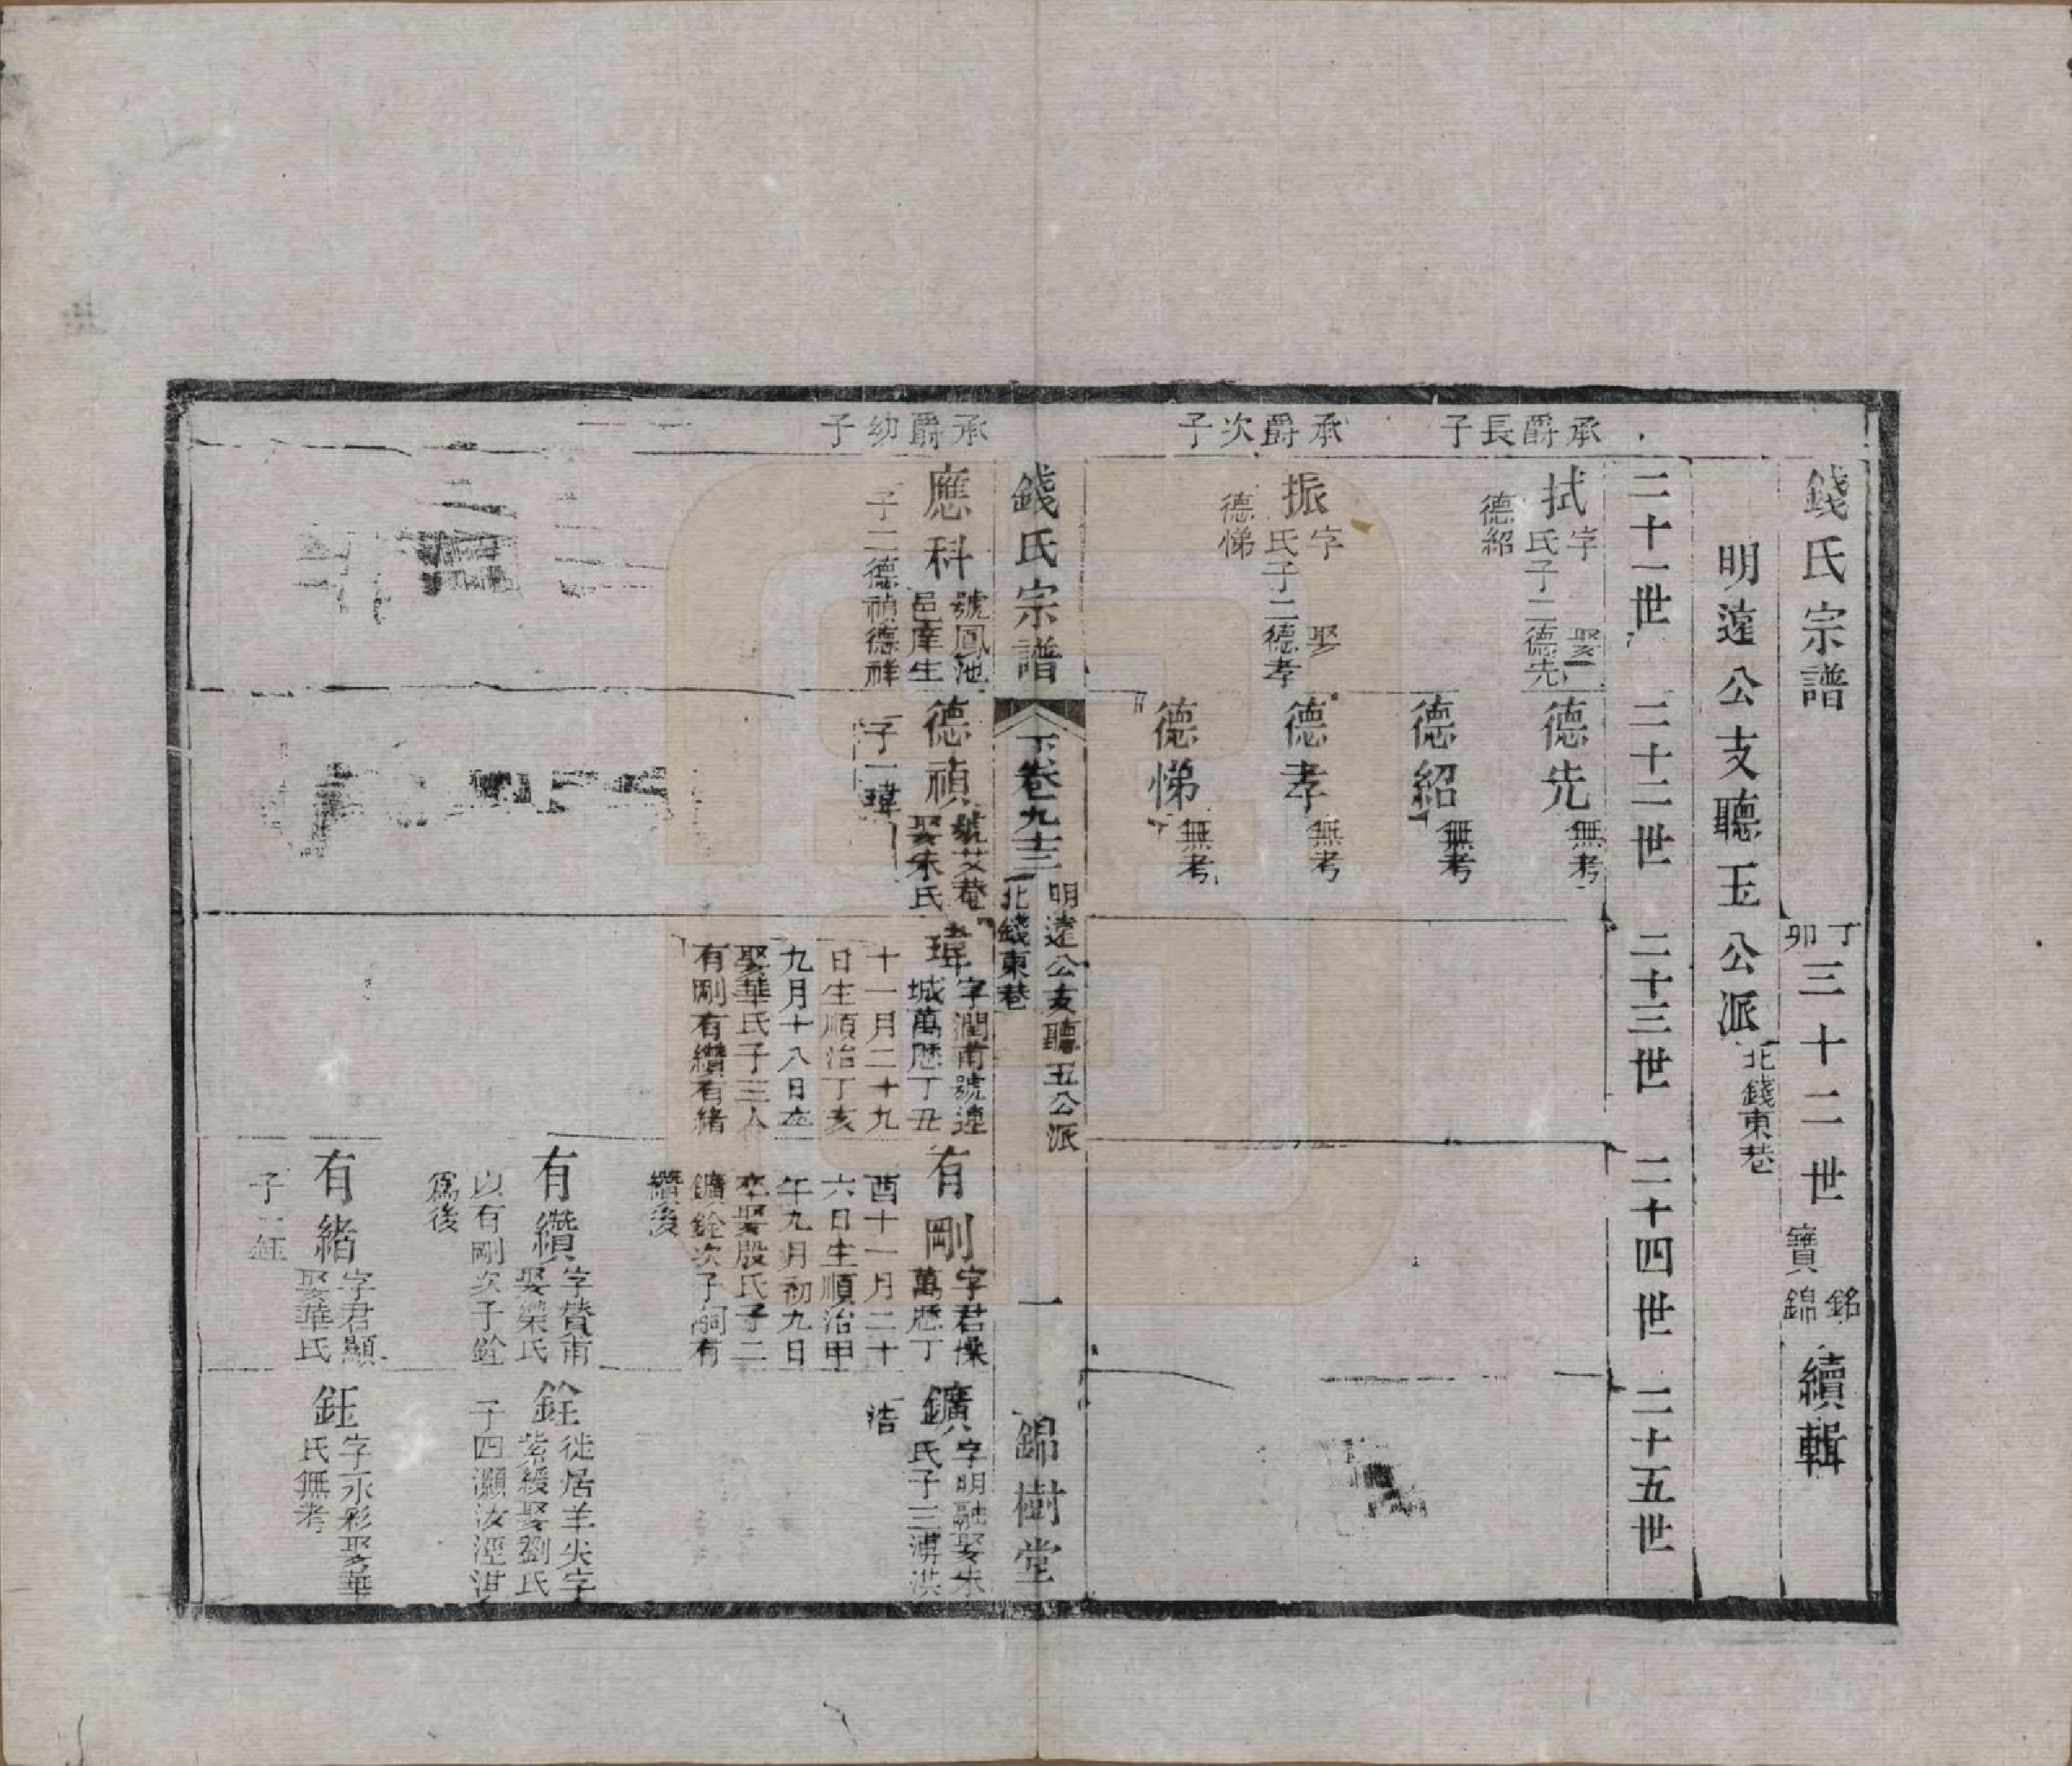 錢氏宗譜
丁卯三十二世寶銘錦續輯
明遠公支聽玉公派北錢東巷
二十一世
二十二世
二十三世
二十四世
二十五世
承爵長子
拭字 娶
氏子二德先
德紹
德先無考
德紹無考
承爵次子
振字 娶
氏子二德孝
德悌
德孝無考
德悌無考
錢氏宗譜
下卷九十三
明遠公支聽玉公派
北錢東巷
一
錦樹堂
承爵幼子
應科號鳳池
邑庠生
子二德禎德祥
德禎號艾菴
娶朱氏
子一瑋
瑋字潤甫號連
城萬厯丁丑
十一月二十九
日生順治丁亥
九月十八日卒
娶華氏子三人
有剛有纘有緒
有剛字君操
萬厯丁
酉十一月二十
六日生順治甲
午九月初九日
卒娶殷氏子二
鑛銓次子嗣有
纘後
鑛字明融娶朱
氏子三溥洪
浩
有纘字贊甫
娶欒氏
以有剛次子銓
為後
銓徙居羊尖字
紫綬娶劉氏
子四灝汝涇淇
有緒字君顯
娶華氏
子一鈺
鈺字永彩娶華
氏無考